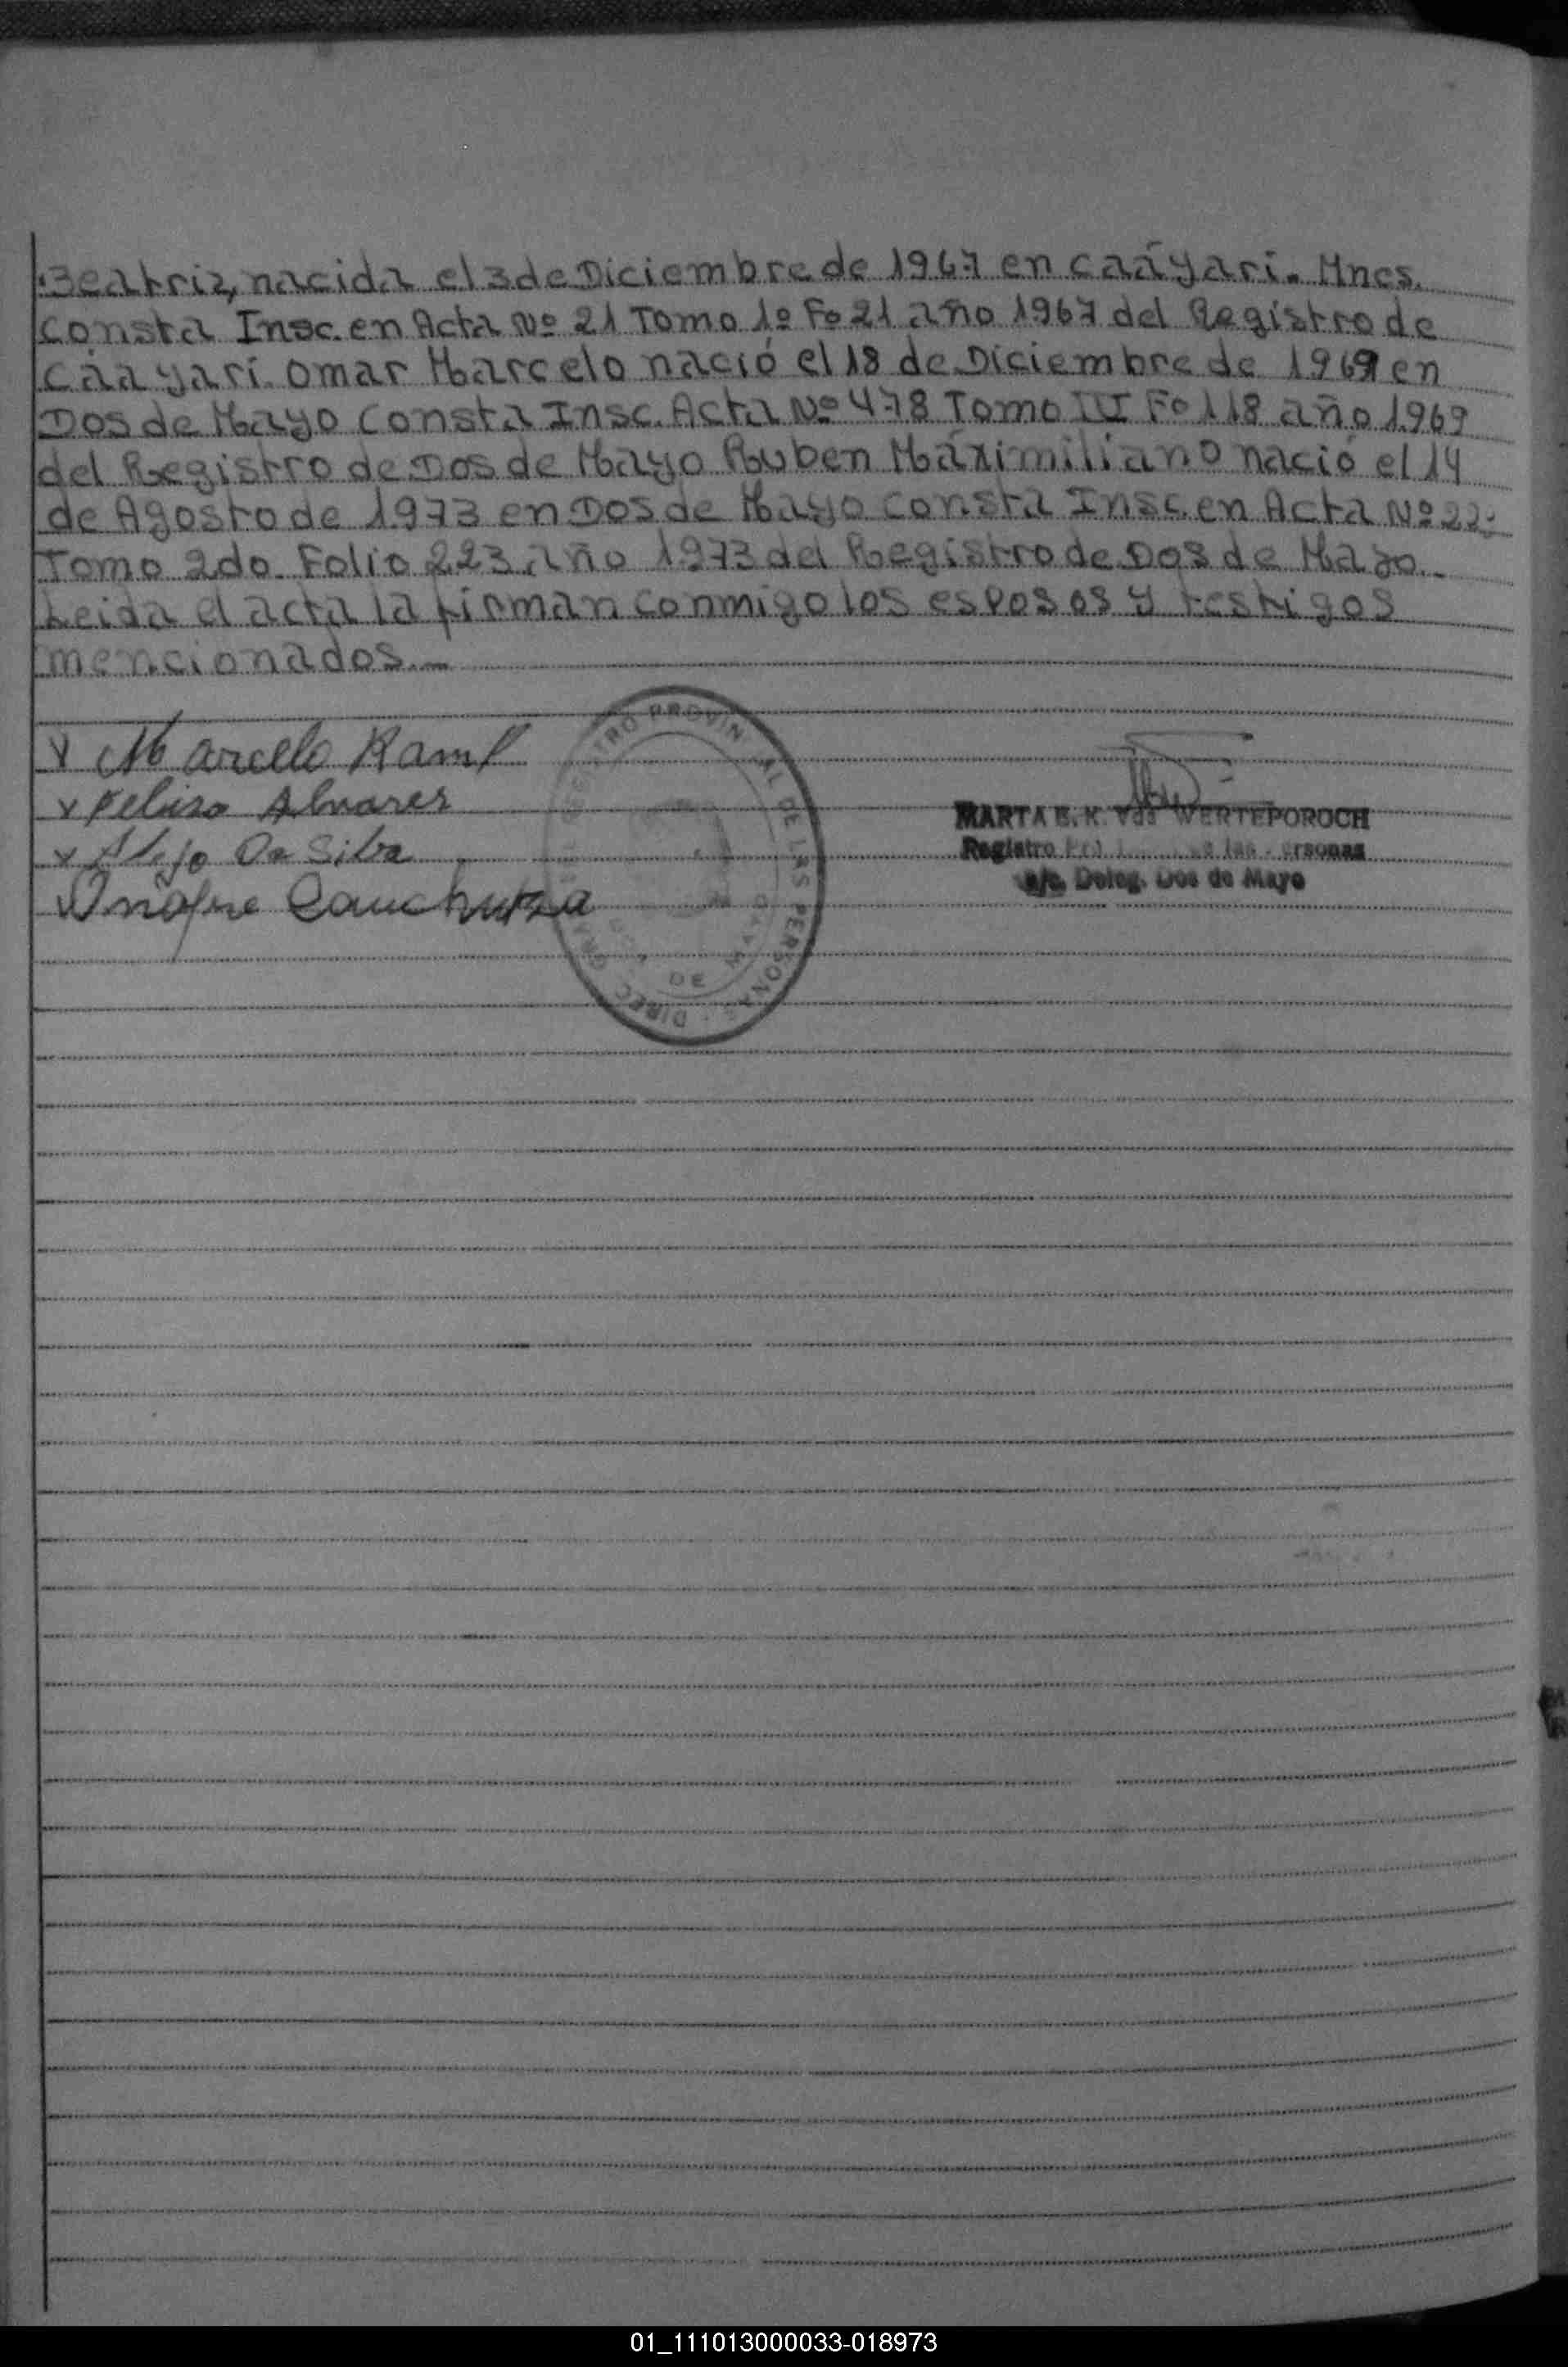 Beatriz, nacida el 3 de Diciembre de 1967 en caáyari. Mnes.
Consta Insc. en Acta Nº 21 Tomo 1º Fº 21 año 1967 del Registro de
Caáyari. Omar Marcelo nació el 18 de Diciembre de 1969 en
Dos de Mayo Consta Insc. Acta Nº 478 Tomo III Fº 118 año 1969
del Registro de Dos de Mayo Ruben Máximiliano nació el 14
de Agosto de 1973 en Dos de Mayo consta Insc. en Acta Nº 22
Tomo 2do. Folio 223 año 1973 del Registro de Dos de Mayo.
Leida el acta la firman conmigo los esposos y testigos
mencionados.
x Marcelo
x Felisa Alvares
x Alejo Da Silva
x Onofre
MARTA E. K. Vda WERTEPOROCH
Registro las Personas
a/c. Deleg. Dos de Mayo
DIREC. GRAL. REGISTRO PROVINCIAL DE LAS PERSONAS
DOS DE MAYO
01_111013000033-018973